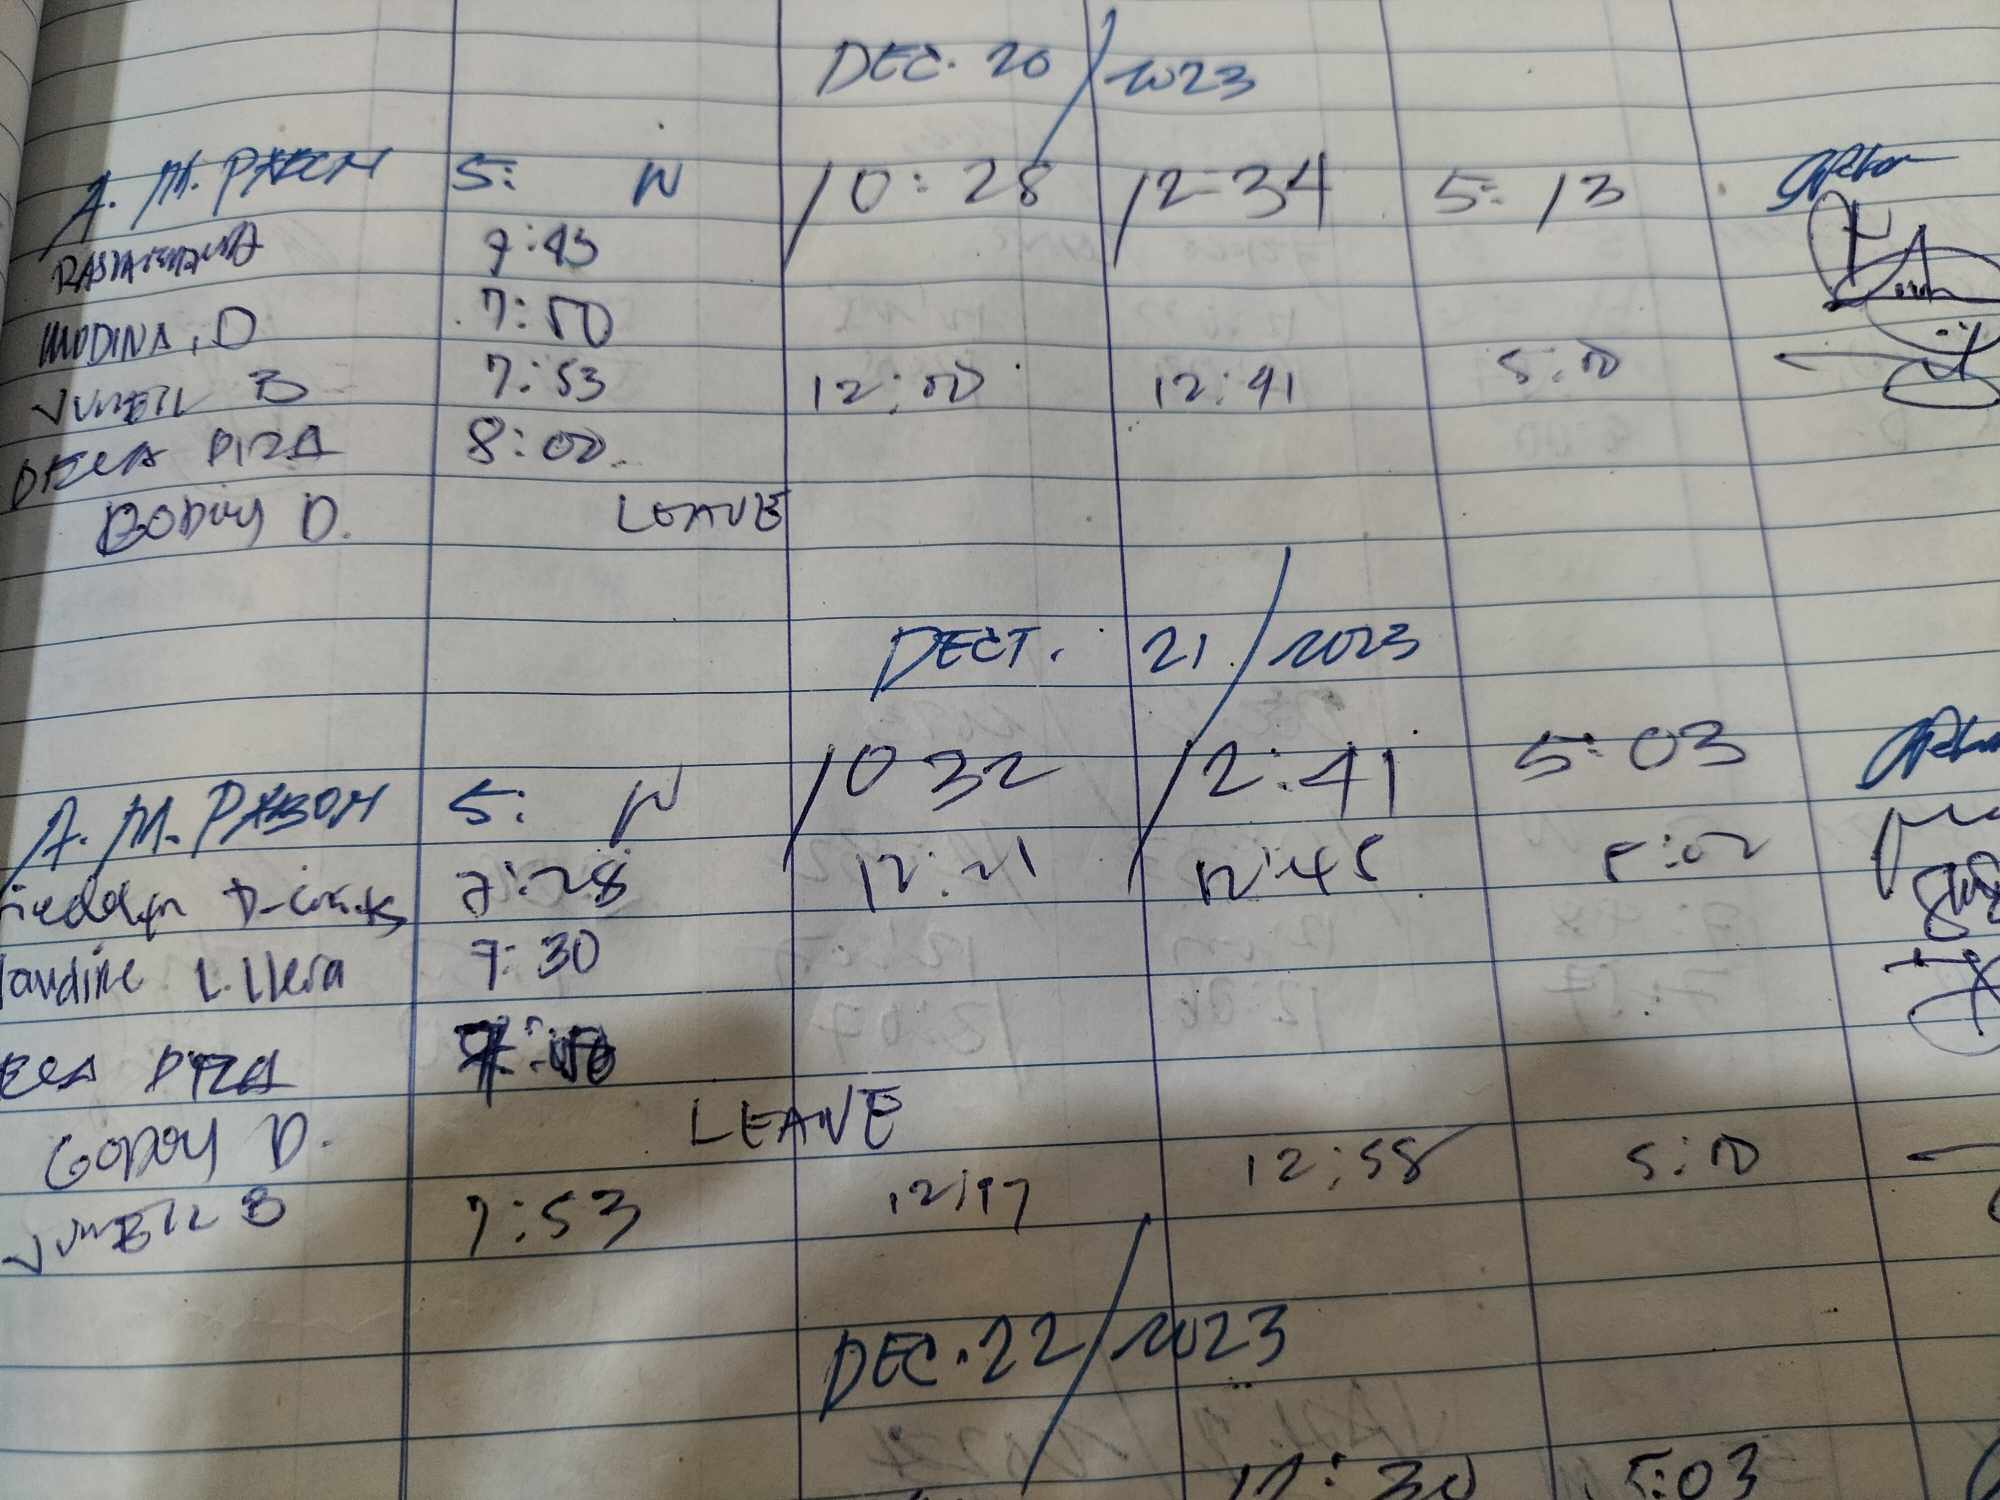 DEC. 20 / 2023
A. M. PABON 5: N 10:28 12-34 5:13
7:45
MODINA, D 7:50
JUMEIL B 7:53 12:00 12:41 5:00
DELA PIZA 8:00
GODOY D. LEAVE
DECT. 21 / 2023
A. M. PABON 5: N 10 32 12:41 5:03
7:28 12:21 12:45 5:02
landine L. Llera 7:30
ELA PIZA
GODOY D. LEAVE
JUMEIL B 7:53 12:17 12:58 5:00
DEC. 22 / 2023
12:30 5:03